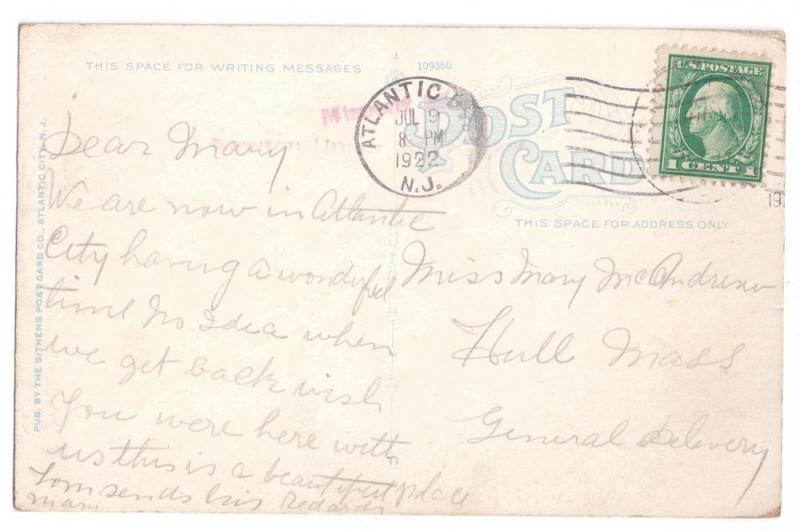 THIS SPACE FOR WRITING MESSAGES
109360
POST
CARD
THIS SPACE FOR ADDRESS ONLY
ATLANTIC
JUL 9
8 PM
1922
N.J.
U.S. POSTAGE
1 CENT 1
PUB. BY THE SITHENS POST CARD CO., ATLANTIC CITY, N.J.
Dear Mary
We are now in Atlantic
City having a wonderful
time No Idea when
we get back wish
you were here with
us this is a beautiful place
Tom sends his regards
Mary
Miss Mary McAndrew
Hull Mass
General Delivery